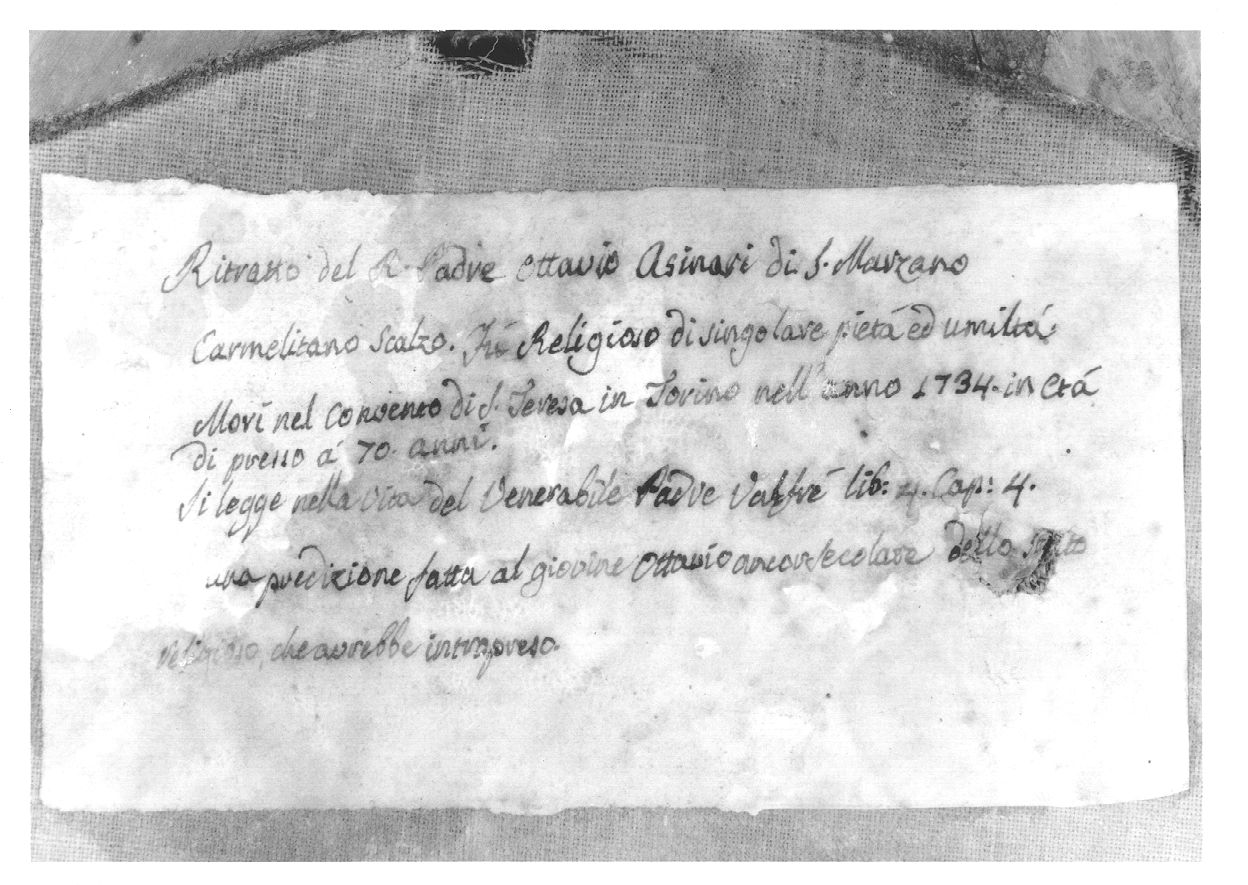 Ritratto del R. Padre Ottavio Asinari di S. Marzano
Carmelitano Scalzo. Fú Religioso di singolare pietá ed umiltá
Morí nel Convento di S. Teresa in Torino nell'anno 1734. in etá
di presso á 70. anni.
Si legge nella vita del Venerabile Padre Valfré lib: 4. Cap: 4.
una predizione fatta al giovine Ottavio ancor secolare dello stato
religioso, che avrebbe intrapreso.